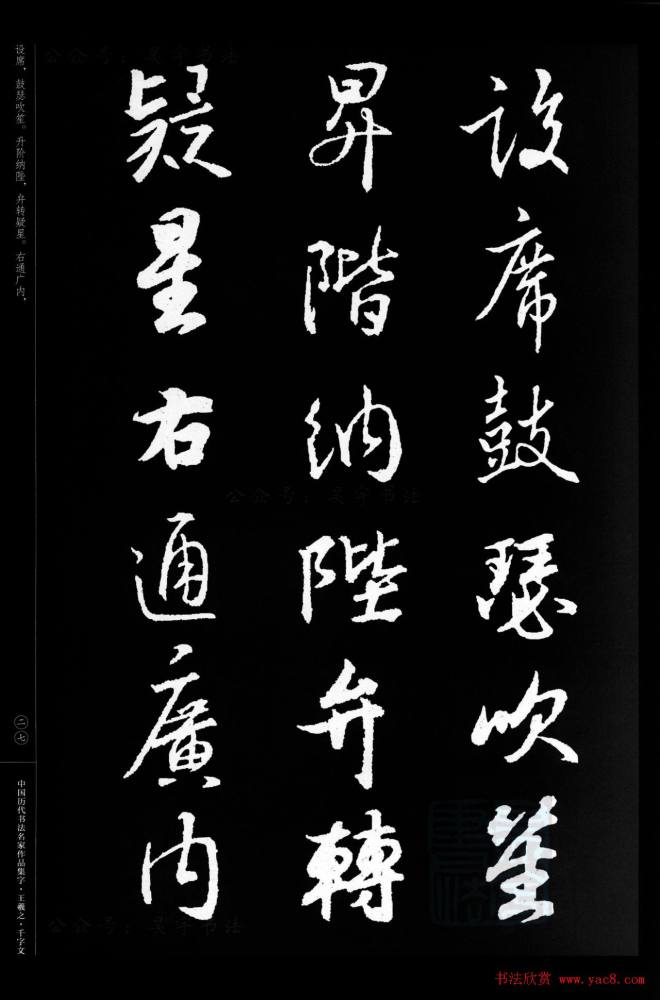 設席鼓瑟吹笙
昇階納陛弁轉
疑星右通廣内
设席，鼓瑟吹笙。升阶纳陛，弁转疑星。右通广内，
二七
中国历代书法名家作品集字·王羲之·千字文
书法欣赏 www.yac8.com